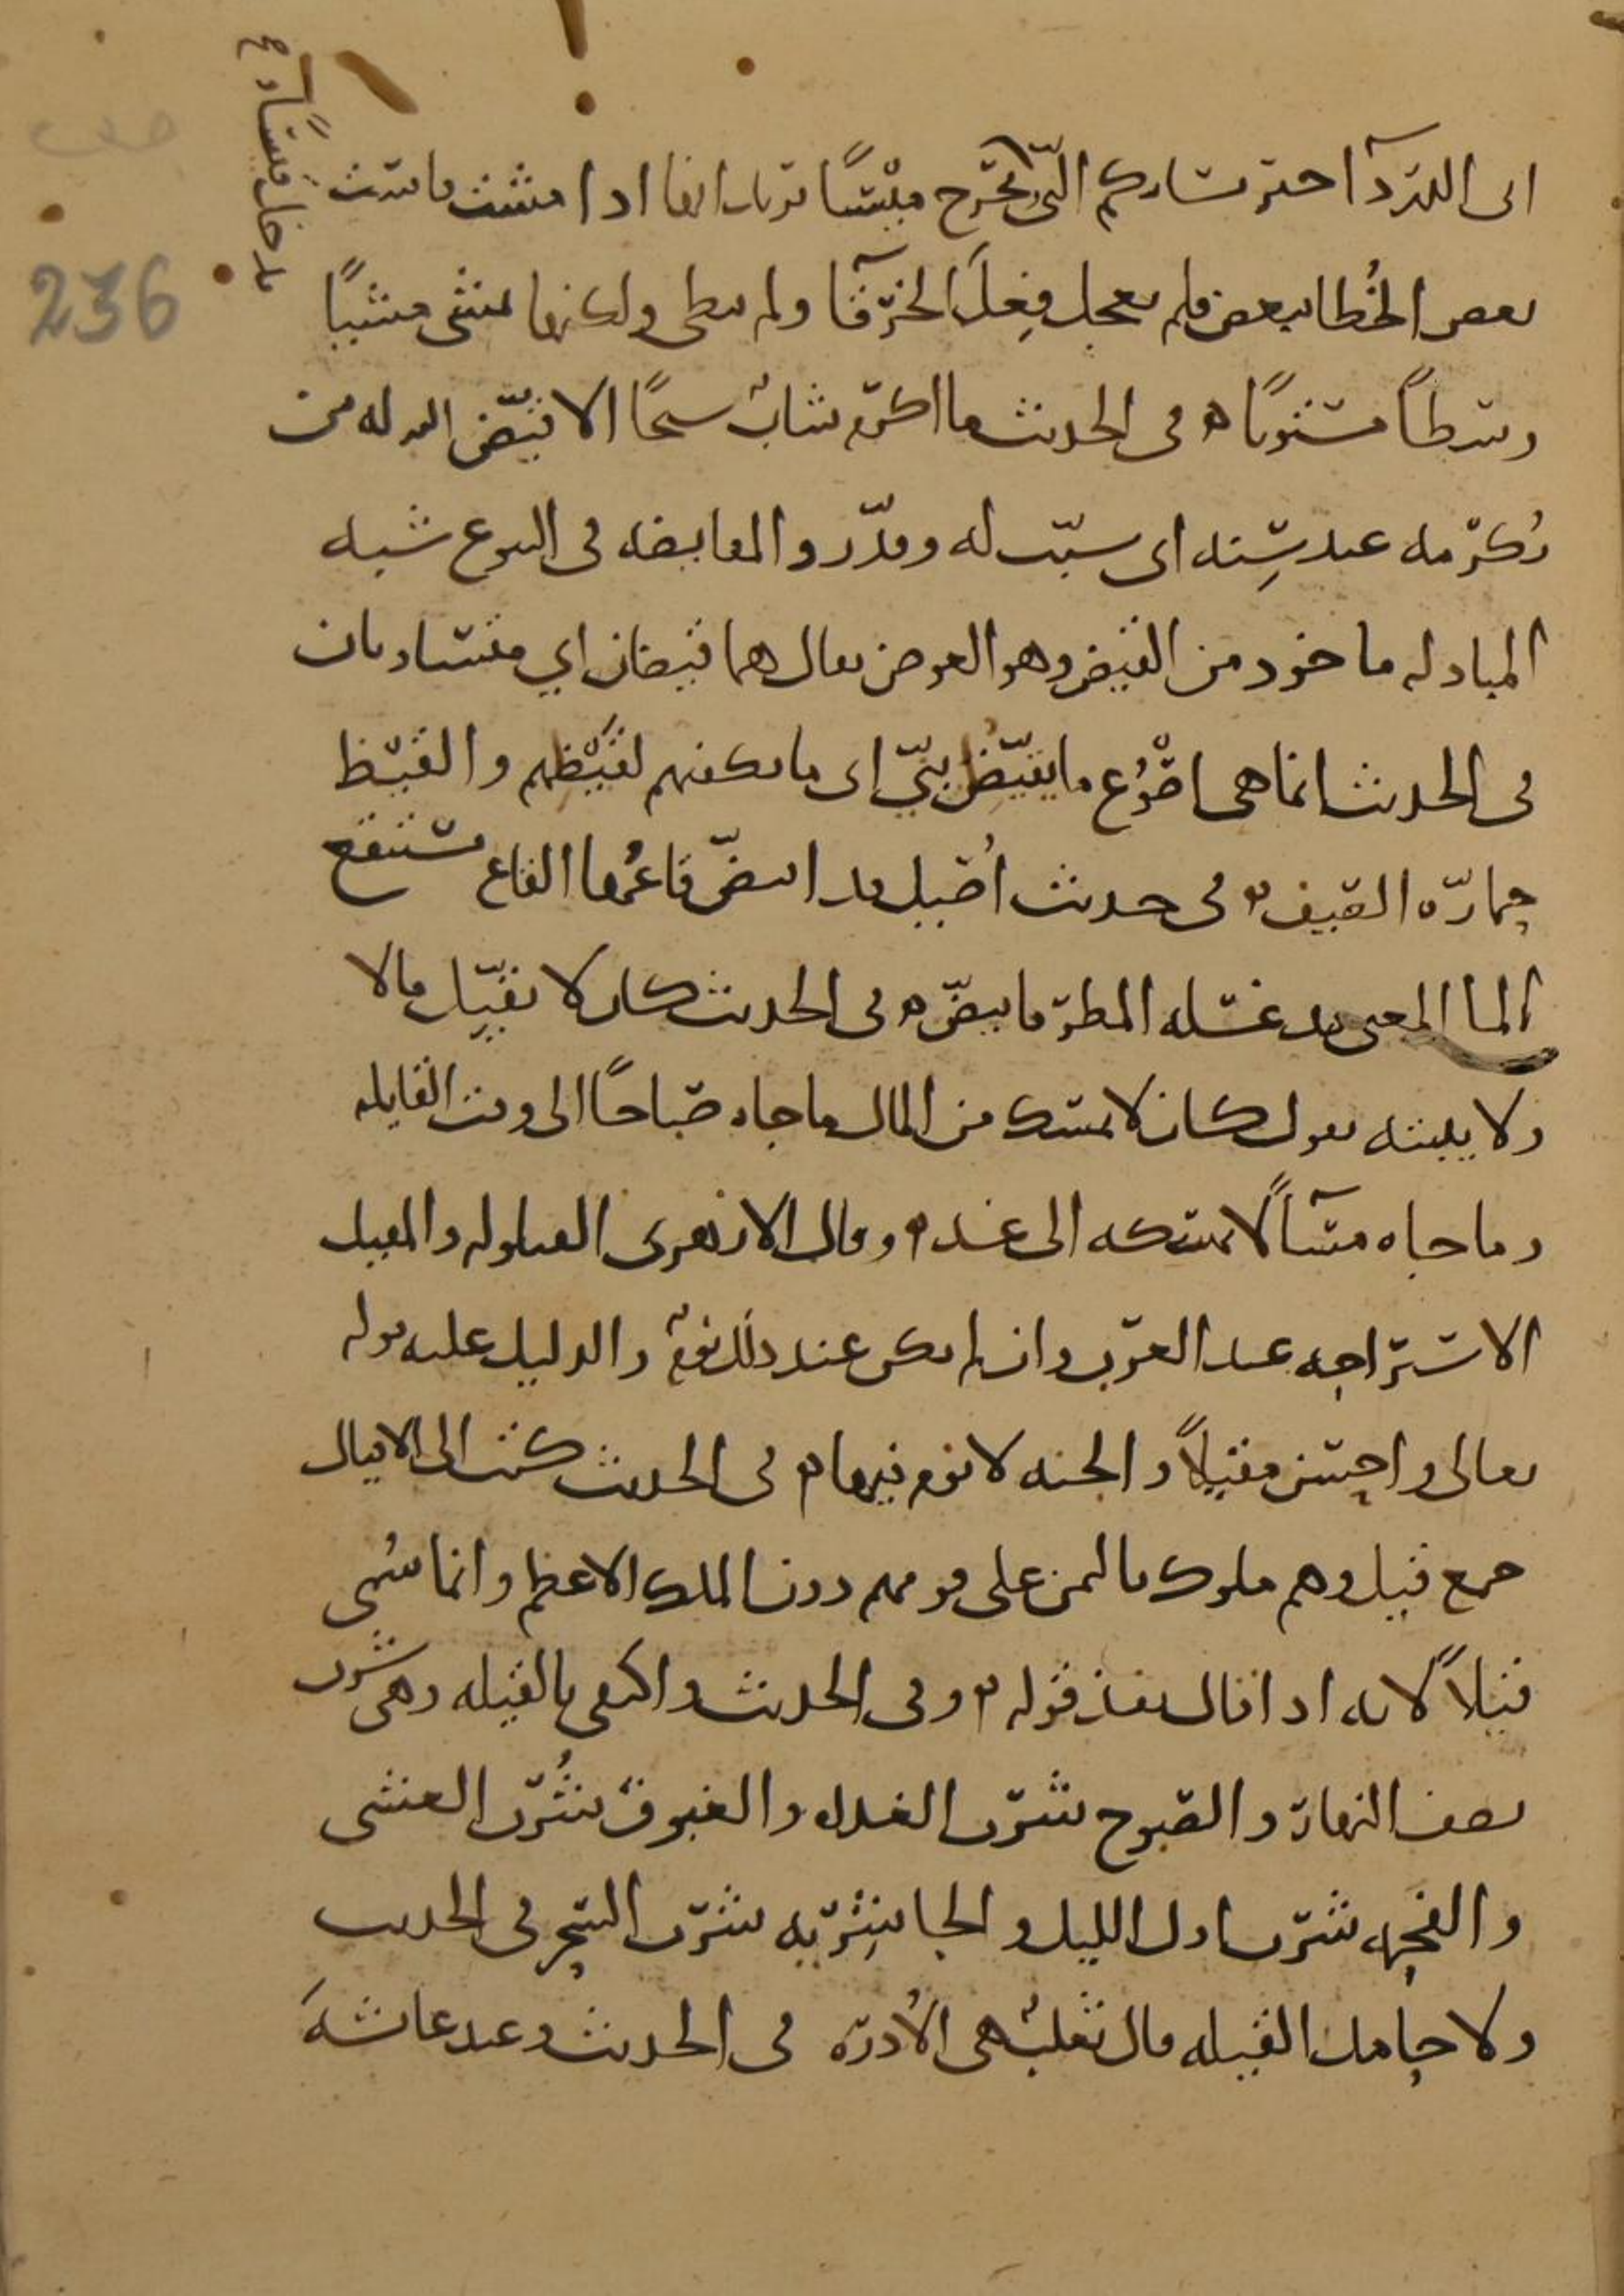 الى الدردآ خير نسايكم التى تخرج قيسًا تريد انها اذا مشت قاست
بعض الخطا ببعض فلم تعجل فعل الخرقا ولم تبطى ولكنها تمشى مشيًا
وسطًا مستويًا ه فى الحديث ما اكرم شاب شيخًا الا قيّض الله له من
يُكرمه عند سِنه اى سبّب له وقدّر والمقايضه فى البيوع شبه
المبادله ماخوذ من القيض وهو العوض يقال هما قيضان اي متساويان
فى الحديث انما هى اصْوُع ما يقيّظن بنيّ اى ما يكفيهم لقيْظهم والقيظ
حمارّه الصيف ه فى حديث اُصيل قد ابيضّ قاعُها القاع مستنقع
الما المعنى قد غسله المطر فابيضّ ه فى الحديث كان لا يقيّل مالا
ولا يبيته يقول كان لا يمسك من المال ما جاه صباحًا الى وقت القايله
وما جاه مسآً لا يمسكه الى غد ه وقال الازهرى القيلوله والمقيل
الاستراحه عند العرب وان لم يكن عند ذلك نومٌ والدليل عليه قوله
تعالى واحسن مقيلاً والجنه لا نوم فيها ه فى الحديث كتب الى الاقيال
جمع قيل وهم ملوك باليمن على قومهم دون الملك الاعظم وانما سُمى
قيلاً لانه اذا قال نفذ قوله ه وفى الحديث واكتفى بالقيله وهى شرب
نصف النهار والصبوح شرب الغداه والغبوق شُرب العشى
والفحمه شرب اول الليل والجاشِريه شرب السحر فى الحديث
ولا حامل القيله قال ثعلبٌ هى الاُدره فى الحديث وعند عائشة
236